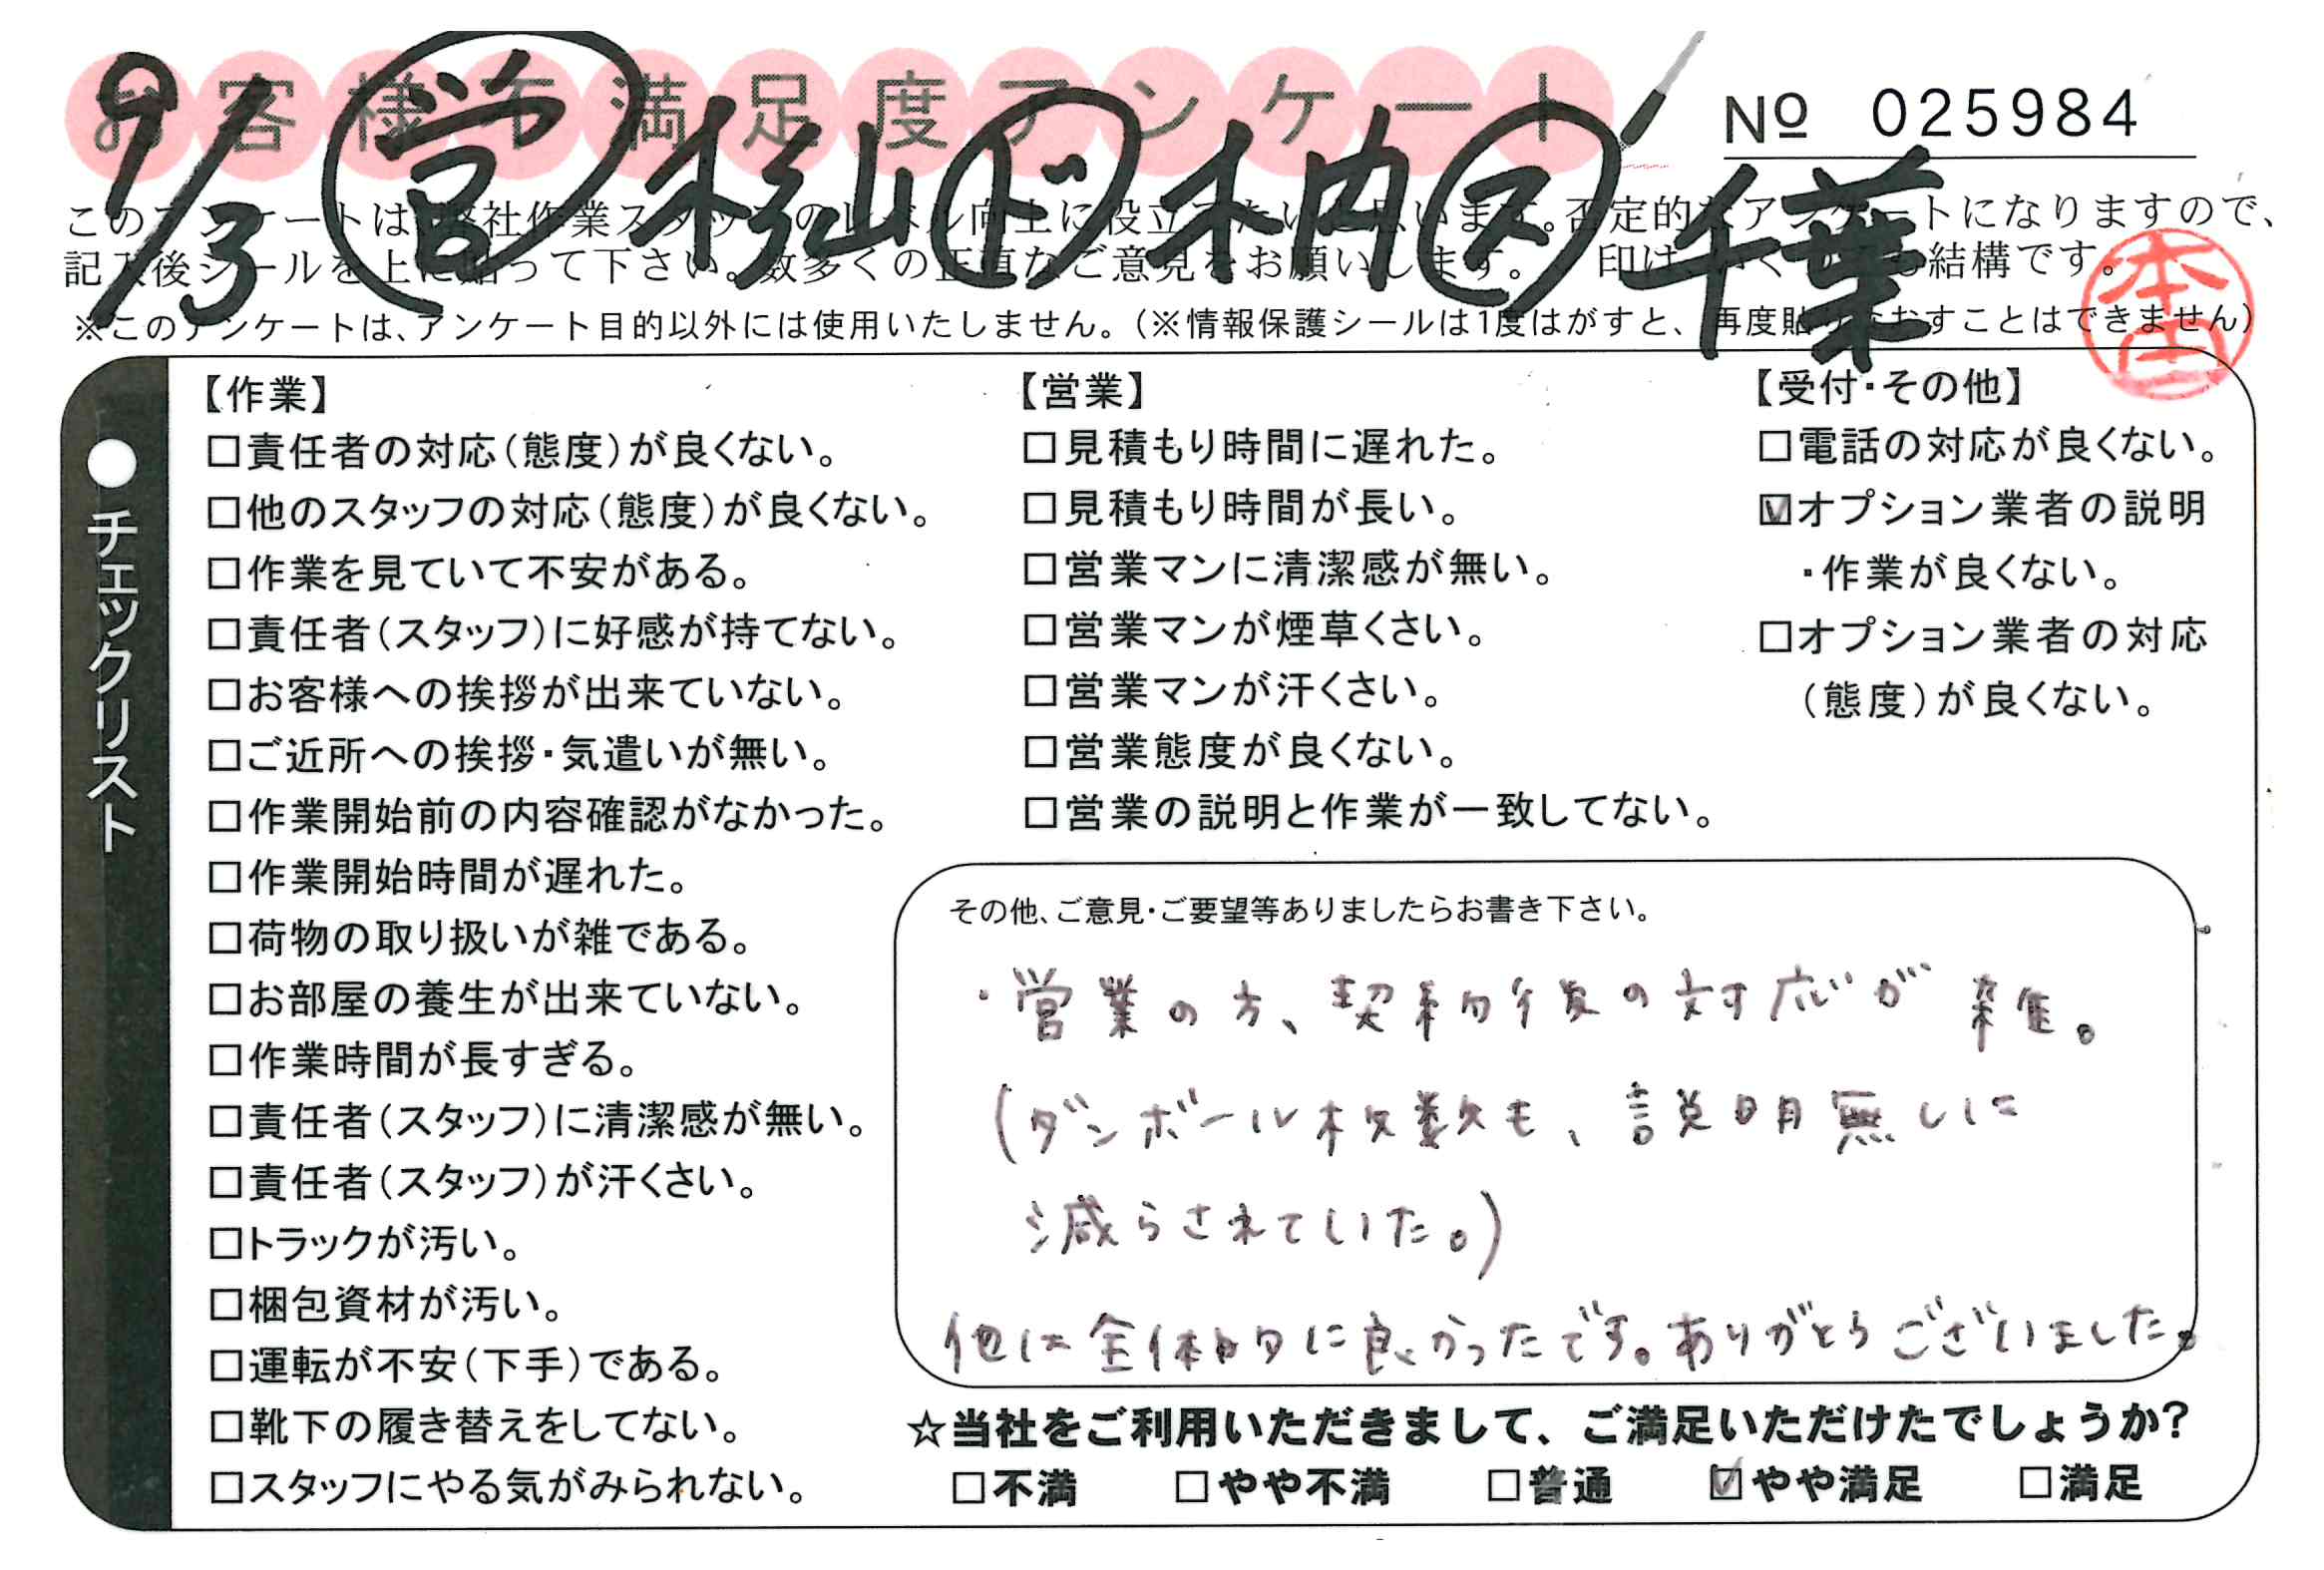 お客様不満足度アンケート
No 025984
9/3 営 杉山 ド 木内 ス 千葉
このアンケートは、弊社作業スタッフのレベル向上に役立てたいと思います。否定的なアンケートになりますので、
記入後シールを上に貼って下さい。数多くの正直なご意見をお願いします。 印は、いくつでも結構です。
※このアンケートは、アンケート目的以外には使用いたしません。(※情報保護シールは1度はがすと、再度貼りなおすことはできません)
本田
●チェックリスト
【作業】
□責任者の対応(態度)が良くない。
□他のスタッフの対応(態度)が良くない。
□作業を見ていて不安がある。
□責任者(スタッフ)に好感が持てない。
□お客様への挨拶が出来ていない。
□ご近所への挨拶・気遣いが無い。
□作業開始前の内容確認がなかった。
□作業開始時間が遅れた。
□荷物の取り扱いが雑である。
□お部屋の養生が出来ていない。
□作業時間が長すぎる。
□責任者(スタッフ)に清潔感が無い。
□責任者(スタッフ)が汗くさい。
□トラックが汚い。
□梱包資材が汚い。
□運転が不安(下手)である。
□靴下の履き替えをしてない。
□スタッフにやる気がみられない。
【営業】
□見積もり時間に遅れた。
□見積もり時間が長い。
□営業マンに清潔感が無い。
□営業マンが煙草くさい。
□営業マンが汗くさい。
□営業態度が良くない。
□営業の説明と作業が一致してない。
【受付・その他】
□電話の対応が良くない。
☑オプション業者の説明
・作業が良くない。
□オプション業者の対応
(態度)が良くない。
その他、ご意見・ご要望等ありましたらお書き下さい。
・営業の方、契約後の対応が雑。
(ダンボール枚数も、説明無しに
減らされていた。)
他は全体的に良かったです。ありがとうございました。
☆当社をご利用いただきまして、ご満足いただけたでしょうか?
□不満 □やや不満 □普通 ☑やや満足 □満足